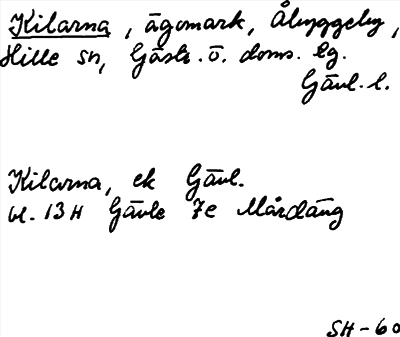 Kilarna, ägomark, Åbyggeby,
Hille sn, Gästr. ö. doms. lg.
Gävl. l.
Kilarna, ek Gävl.
bl. 13 H Gävle 7e Mårdäng
SH-60